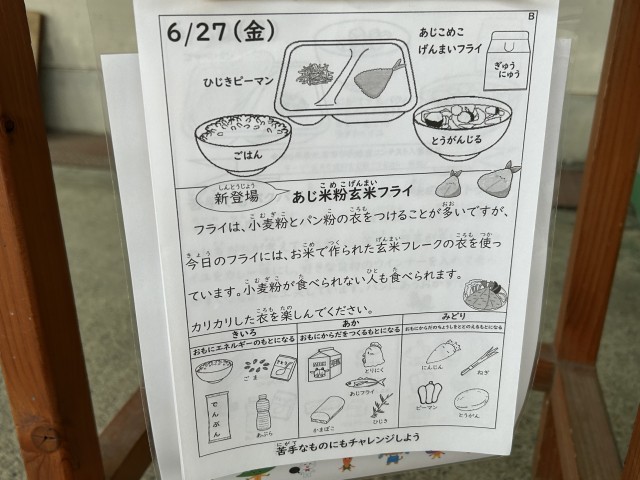 B
6/27(金)
あじこめこ
げんまいフライ
ぎゅう
にゅう
ひじきピーマン
ごはん
とうがんじる
新登場
あじ米粉玄米フライ
フライは、小麦粉とパン粉の衣をつけることが多いですが、
今日のフライには、お米で作られた玄米フレークの衣を使っ
ています。小麦粉が食べられない人も食べられます。
カリカリした衣を楽しんでください。
きいろ
あか
みどり
おもにエネルギーのもとになる
おもにからだをつくるもとになる
おもにからだのちょうしをととのえるもとになる
ごま
でんぷん
あぶら
とりにく
あじフライ
かまぼこ
ひじき
にんじん
ねぎ
ピーマン
とうがん
苦手なものにもチャレンジしよう